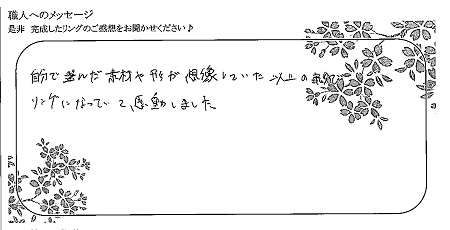 職人へのメッセージ
是非 完成したリングのご感想をお聞かせください♪
自分で選んだ素材や形が想像していた以上の素敵な
リングになっていて、感動しました